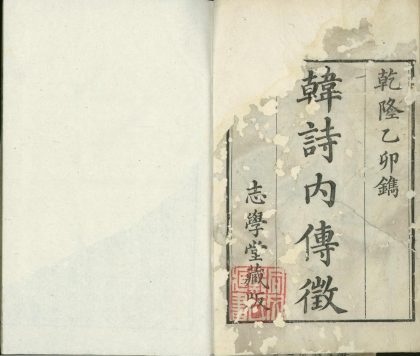 乾隆乙卯鐫
韓詩内傳徴
志學堂藏版